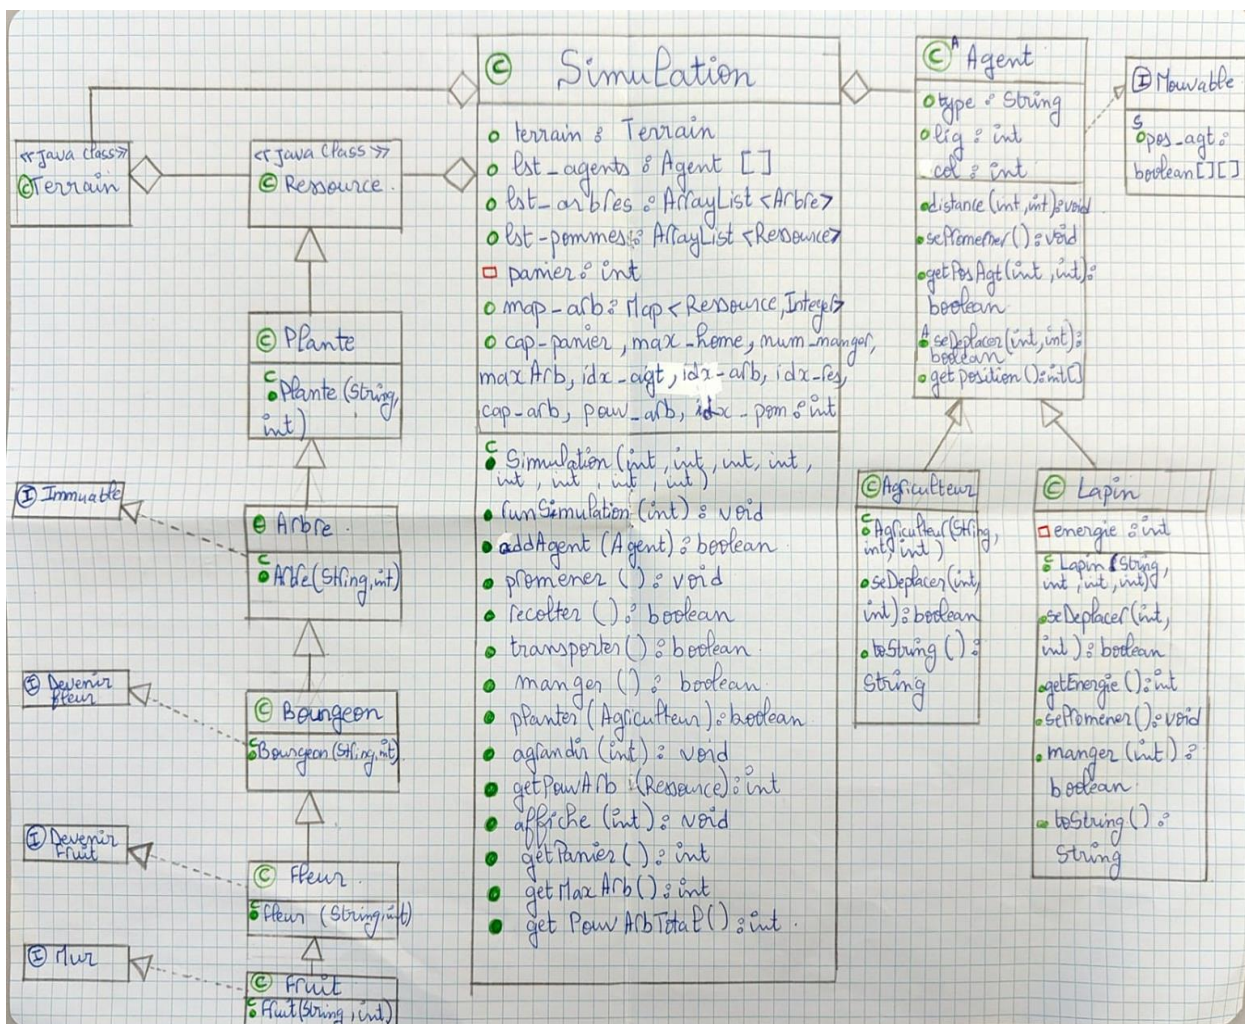 <<Java class>>
C Terrain
<<Java Class>>
C Ressource
C Plante
C Plante (String,
int)
I Immuable
C Arbre
C Arbre (String, int)
I Devenir
fleur
C Bourgeon
C Bourgeon (String, int)
I Devenir
Fruit
C Fleur
C Fleur (String, int)
I Mur
C Fruit
C Fruit (String, int)
C Simulation
terrain : Terrain
lst_agents : Agent []
lst_arbres : ArrayList <Arbre>
lst_pommes : ArrayList <Ressource>
panier : int
map_arb : Map <Ressource, Integer>
cap_panier, max_home, num_manger,
maxArb, idx_agt, idx_arb, idx_res,
cap_arb, pouv_arb, idx_pom : int
C Simulation (int, int, int, int,
int, int, int, int)
runSimulation (int) : void
addAgent (Agent) : boolean
promener () : void
recolter () : boolean
transporter () : boolean
manger () : boolean
planter (Agriculteur) : boolean
agrandir (int) : void
getPouvArb (Ressource) : int
affiche (int) : void
getPanier () : int
getMaxArb () : int
get PouvArbTotal () : int
C A Agent
type : String
lig : int
col : int
distance (int, int) : void
sePromener () : void
getPosAgt (int, int) :
boolean
A seDeplacer (int, int) :
boolean
getposition () : int[]
I Mouvable
S pos_agt :
boolean[][]
C Agriculteur
C Agriculteur (String,
int, int)
seDeplacer (int,
int) : boolean
toString () :
String
C Lapin
energie : int
C Lapin (String,
int, int, int)
seDeplacer (int,
int) : boolean
getEnergie () : int
sePromener () : void
manger (int) :
boolean
toString () :
String